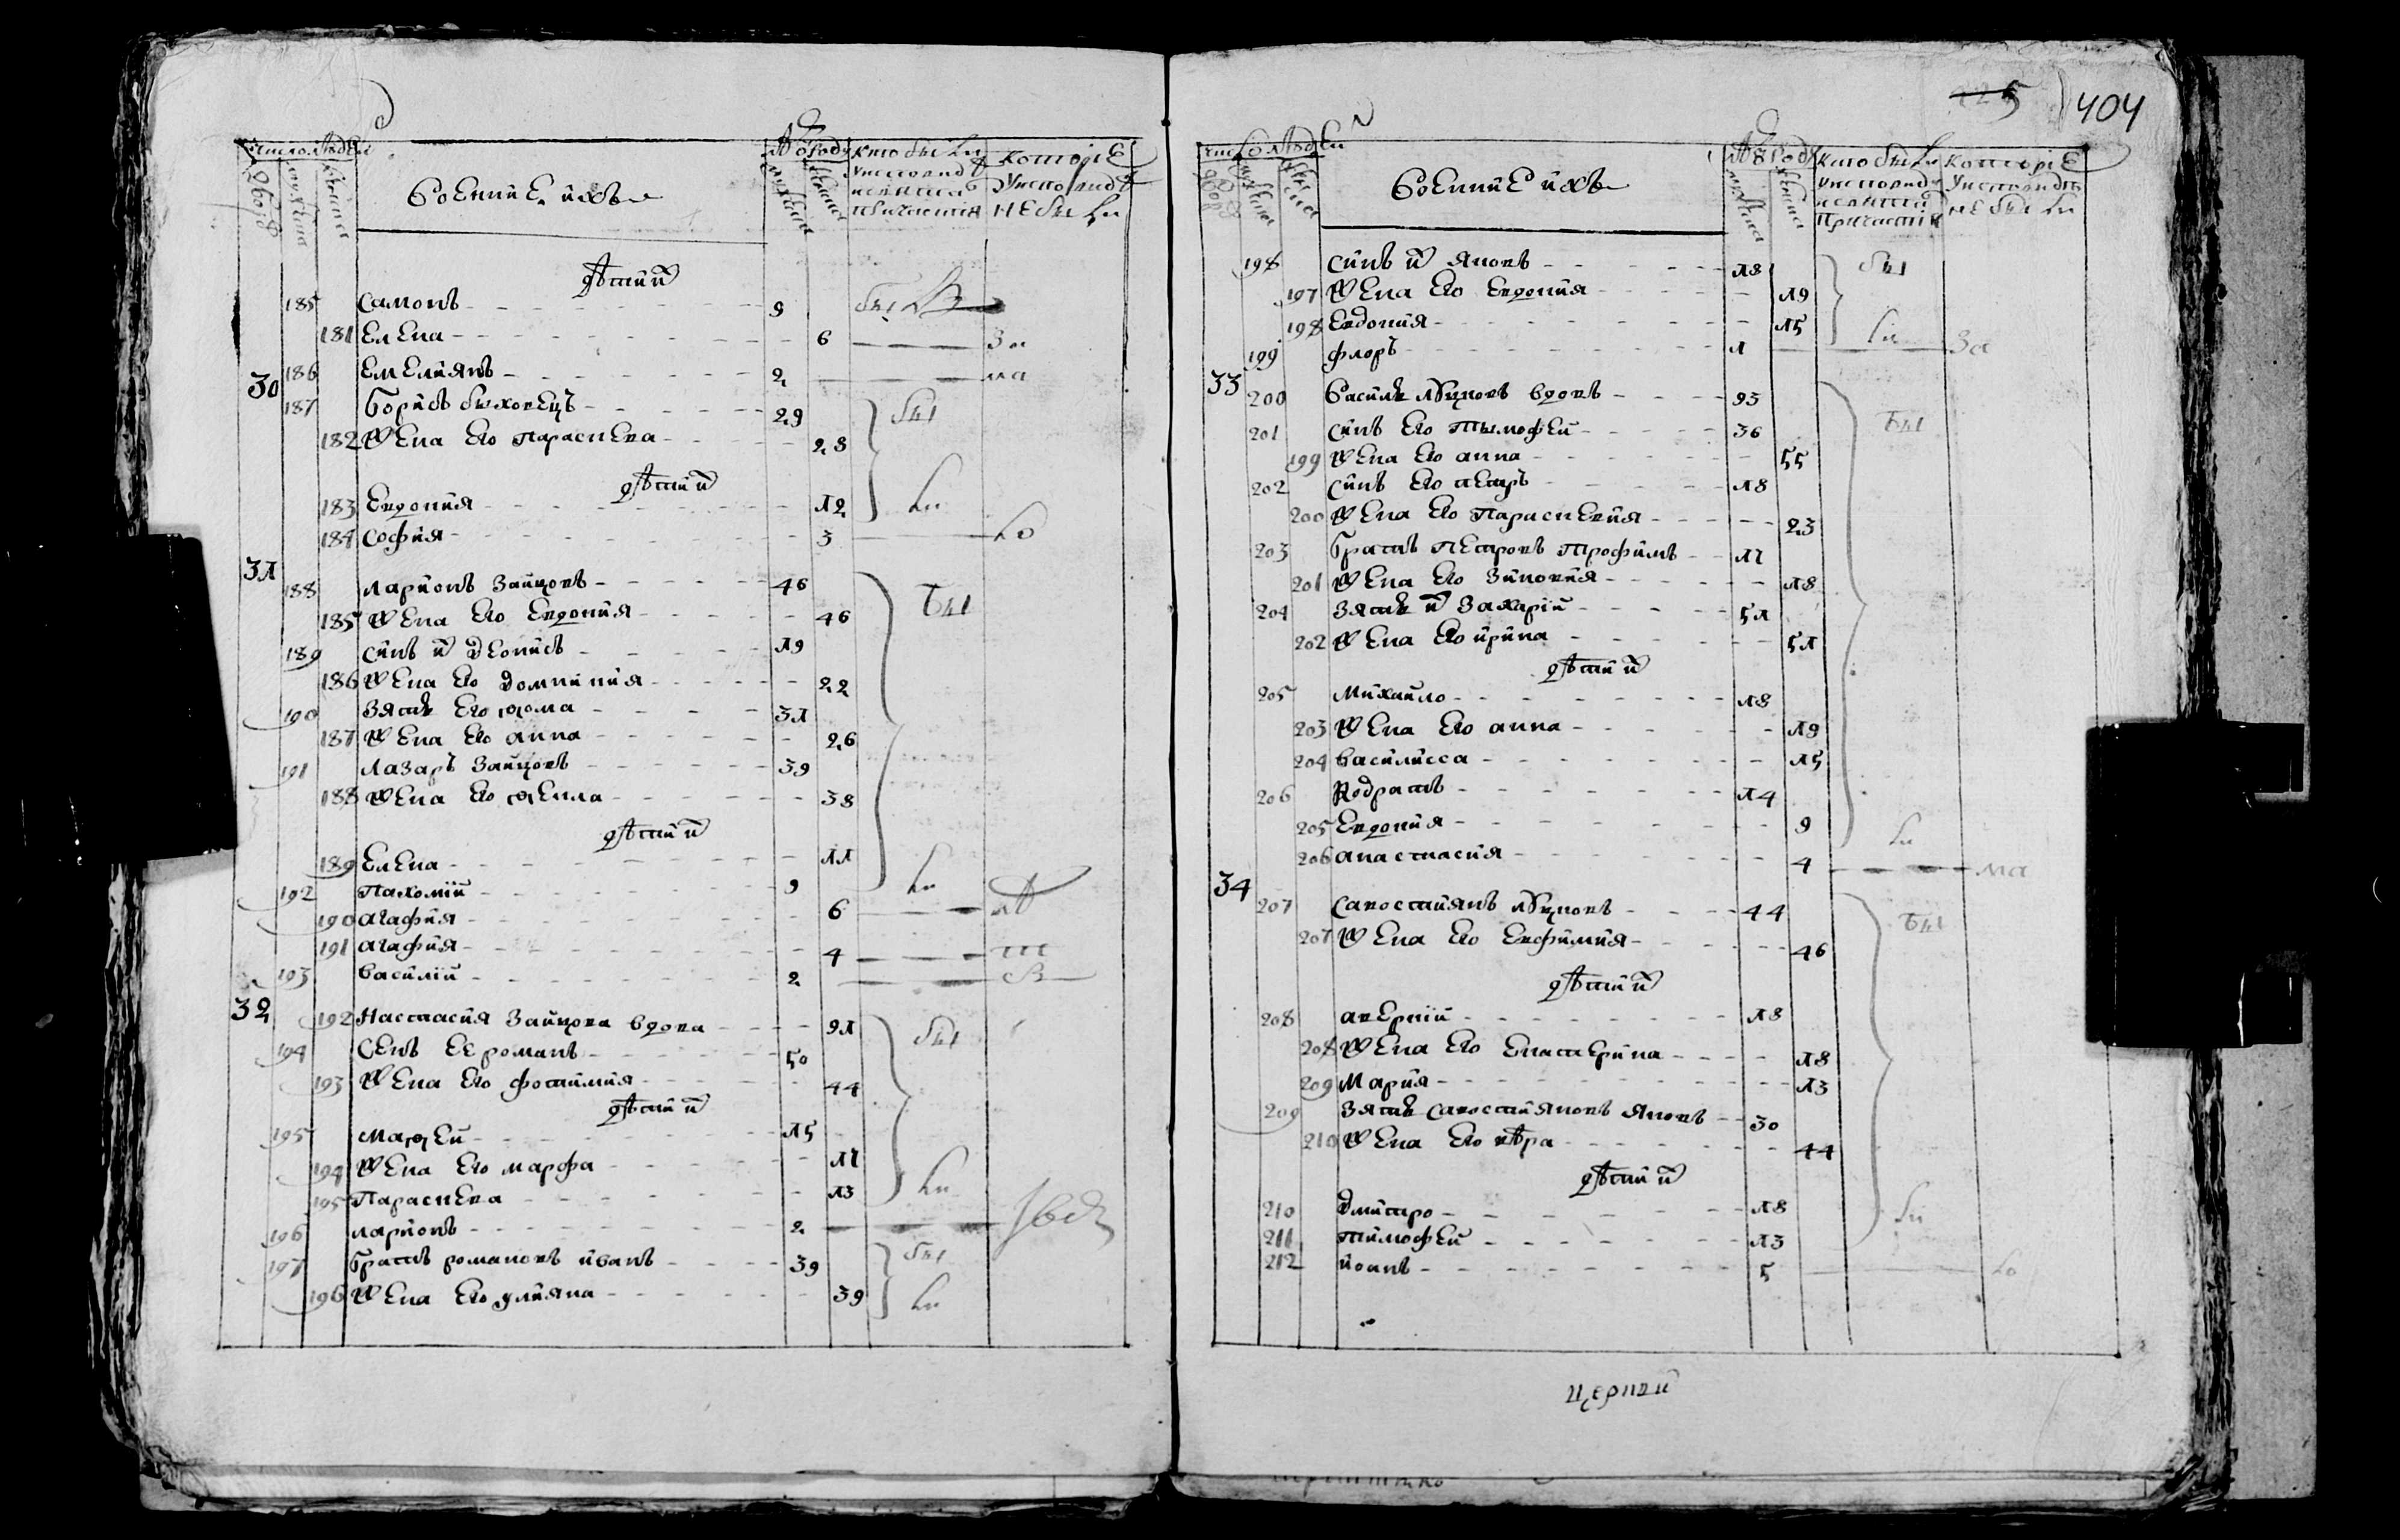 число людей
дворов
мужска
женска
военние ихъ
лѣта от роду
мужска
женска
кто были у исповиди и святаго причастія
которіе у исповиди не были
дѣти ихъ
185 Самонъ 9 был
181 Елена 6 за
186 Емелиянъ 2 ма
30 187 Борисъ быховецъ 29 бы
182 жена его параскева 28
дѣти ихъ
183 Евдокия 12 ли
184 София 3 ло
31
188 ларионъ Зайцовъ 46
185 жена его Евдокия 46 бы
189 синъ их Деонисъ 19
186 жена его домникия 22
190 Зять его фома 31
187 жена его анна 26
191 лазаръ Зайцовъ 39
188 жена его фекла 38
дѣти ихъ
189 Елена 11
192 Пахомій 9 ли
190 агафия 6 лѣ
191 агафия 4 т
193 василій 2 ст
32 192 Настасия Зайцова вдова 91 бы
194 Сенъ ее романъ 50
193 жена его фотимия 44
дѣти ихъ
195 мафей 15
194 жена его марфа 17
195 Параскева 13 ли
196 ларионъ 2
197 братъ романовъ иванъ 39 бы
196 жена его улияна 39 ли
125 404
число людей
дворов
мужска
женска
военние ихъ
лѣта от роду
мужска
женска
кто были у исповиди и святаго причастія
которіе у исповидѣ не были
198 синъ их яковъ 18 бы
197 жена его Евдокия 19
198 Евдокия 15 ли
199 флоръ 1 за
33 200 василь лѣцковъ вдовъ 93
201 синъ его тымофей 36 бы
199 жена его анна 55
202 синъ его петръ 18
200 жена его параскевия 23
203 братъ петровъ трофимъ 17
201 жена его зиновия 18
204 зять их Захарій 51
202 жена его ирина 51
дѣти ихъ
205 михайло 18
203 жена его анна 19
204 василисса 15
206 кодратъ 14
205 Евдокия 9 ли
206 анастасия 4 ма
34
207 савостиянъ лѣцковъ 44 бы
207 жена его Евфимия 46
дѣти ихъ
208 аверкій 18
208 жена его екатерина 18
209 мария 13
209 зять савостияновъ яковъ 30
210 жена его вѣра 44
дѣти ихъ
210 дмитро 18 ли
211 тимофей 13
212 иоанъ 5 ло
церкви